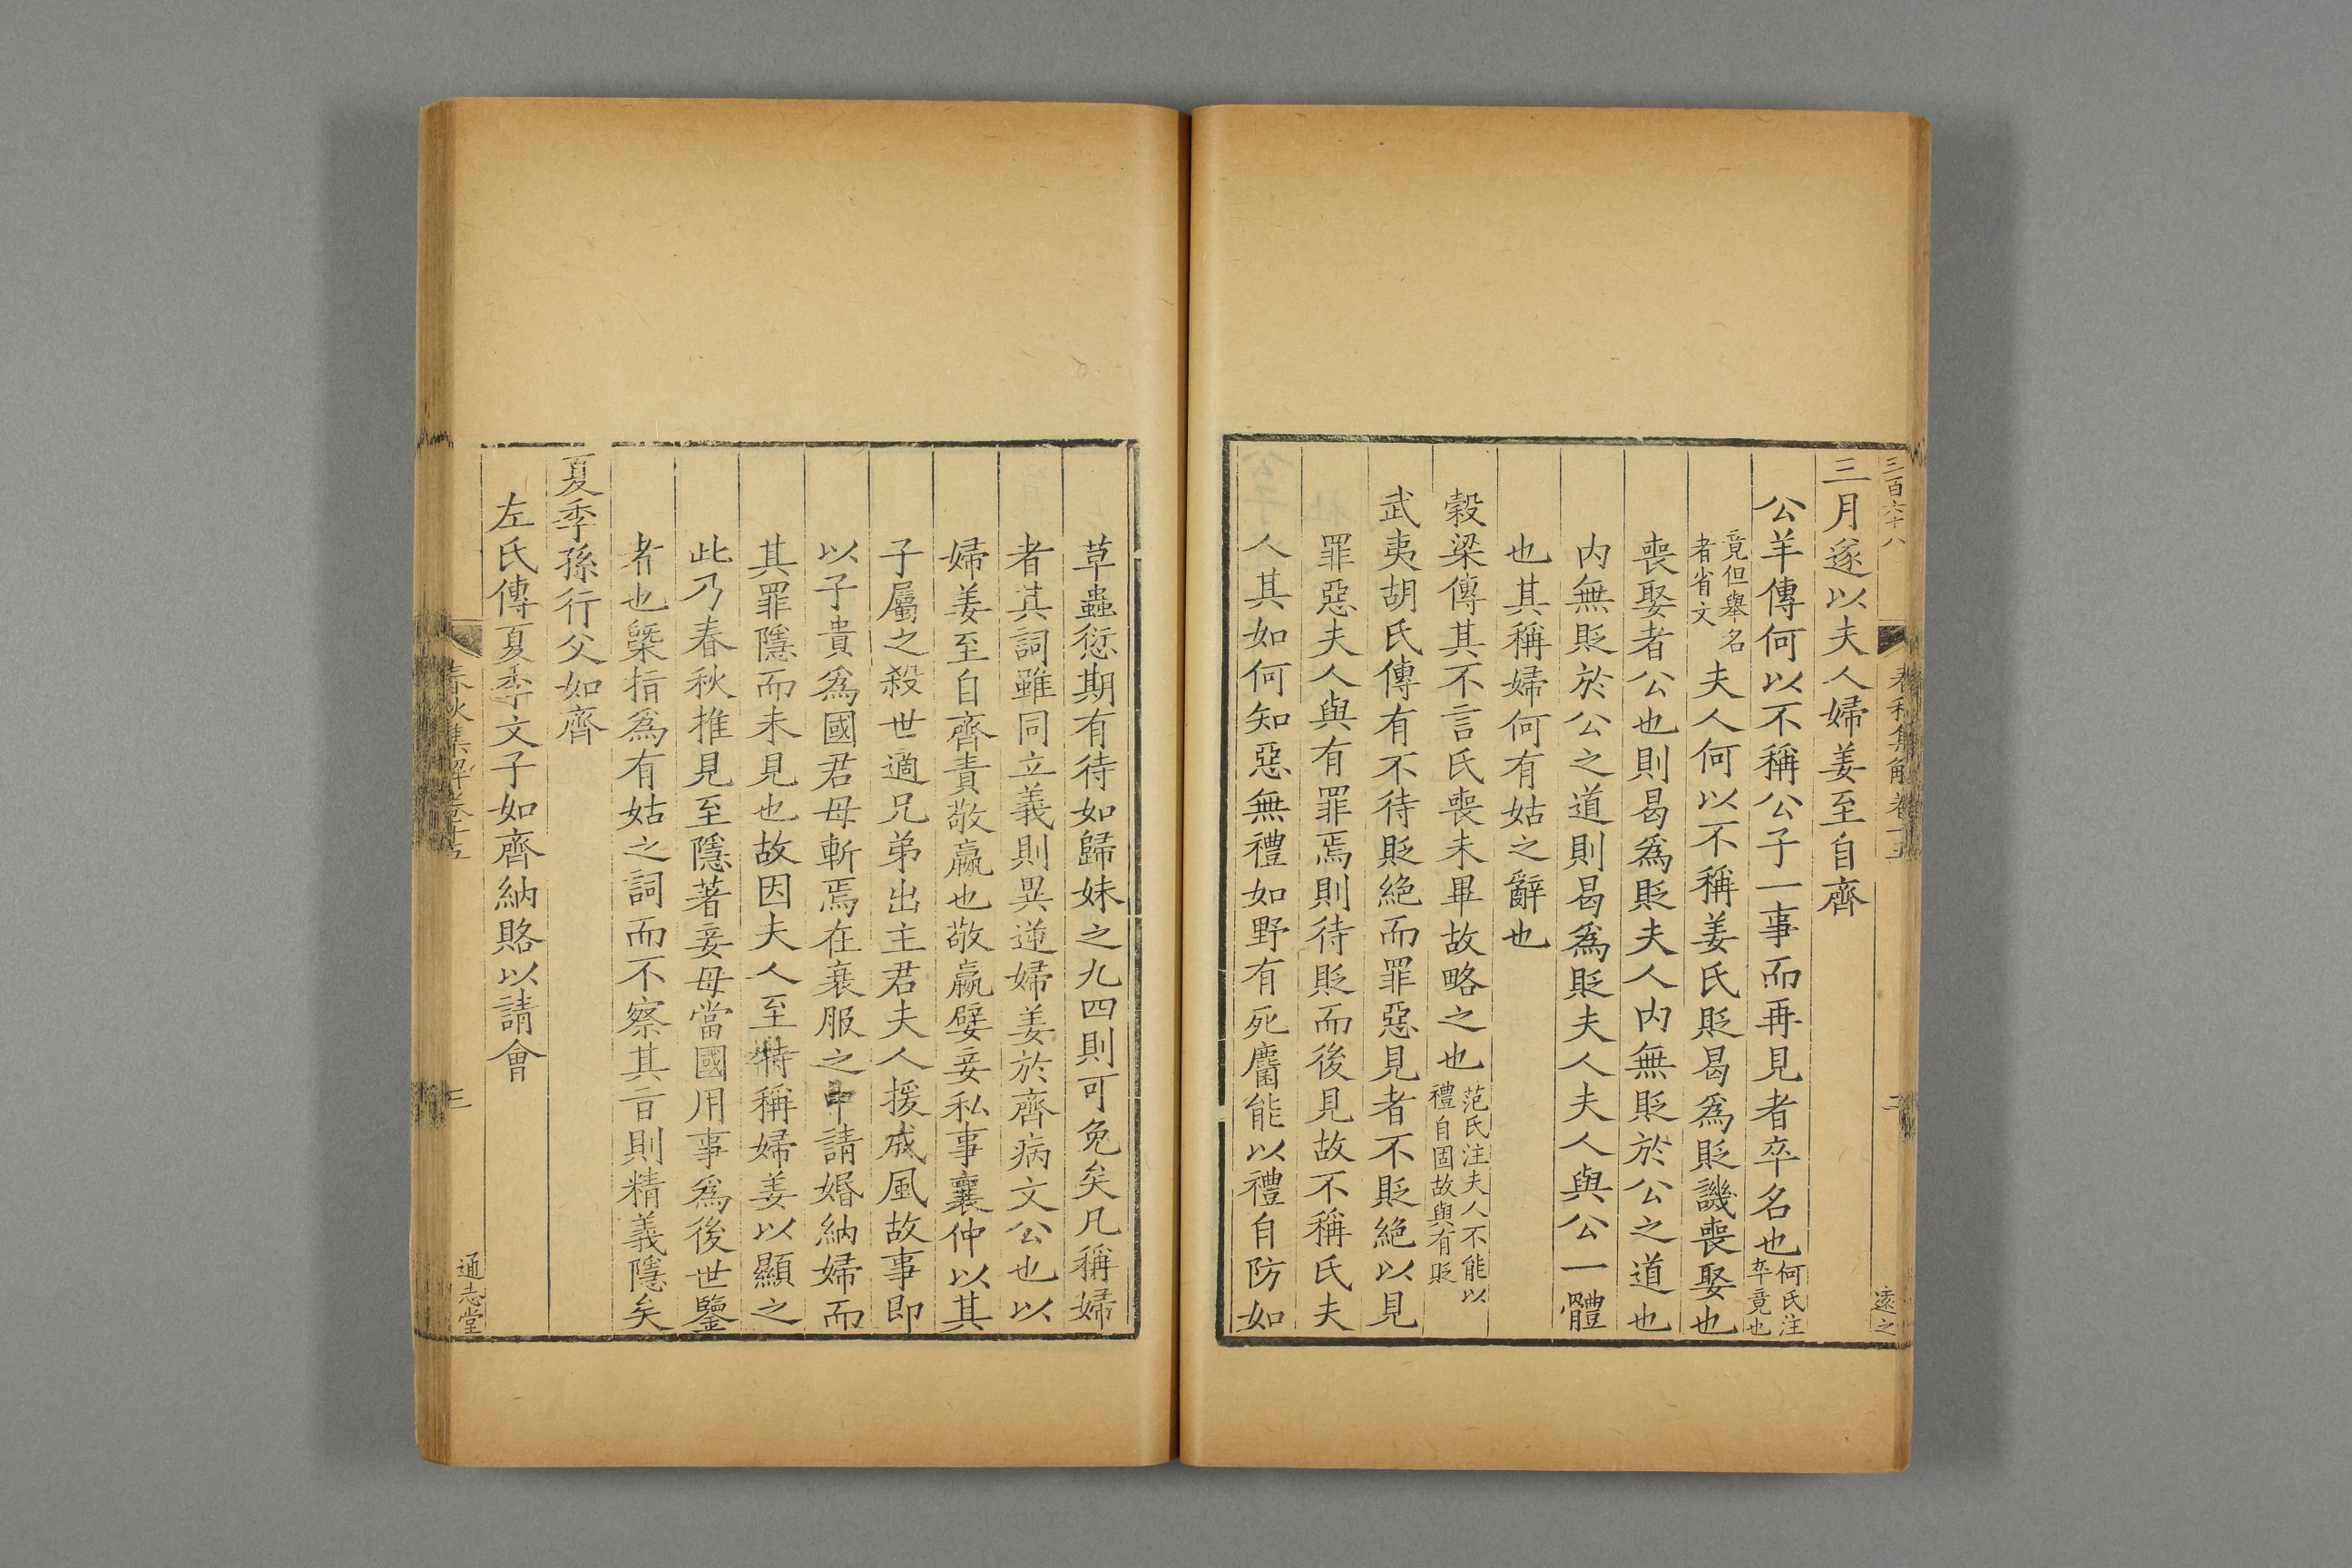 三百六十八
春秋集解卷十五
二
遠之
三月遂以夫人婦姜至自齊
公羊傳何以不稱公子一事而再見者卒名也何氏注卒竟也
竟但舉名者省文夫人何以不稱姜氏貶曷爲貶譏喪娶也
喪娶者公也則曷爲貶夫人内無貶於公之道也
内無貶於公之道則曷爲貶夫人夫人與公一體
也其稱婦何有姑之辭也
穀梁傳其不言氏喪未畢故略之也范氏注夫人不能以禮自固故與有貶
武夷胡氏傳有不待貶絶而罪惡見者不貶絶以見
罪惡夫人與有罪焉則待貶而後見故不稱氏夫
人其如何知惡無禮如野有死麕能以禮自防如
草蟲愆期有待如歸妹之九四則可免矣凡稱婦
者其詞雖同立義則異逆婦姜於齊病文公也以
婦姜至自齊責敬嬴也敬嬴嬖妾私事襄仲以其
子屬之殺世適兄弟出主君夫人援成風故事即
以子貴爲國君母斬焉在衰服之中請婚納婦而
其罪隱而未見也故因夫人至特稱婦姜以顯之
此乃春秋推見至隱著妾母當國用事爲後世鑒
者也槩指爲有姑之詞而不察其言則精義隱矣
夏季孫行父如齊
左氏傳夏季文子如齊納賂以請會
春秋集解卷十五
三
通志堂